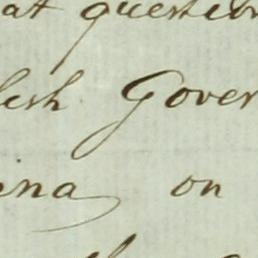 at question
lish Gover
na on